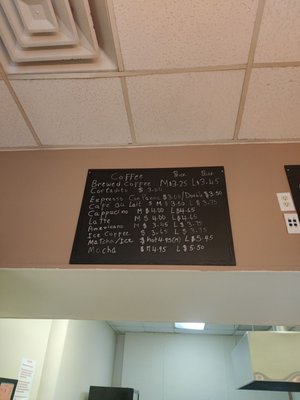 Coffee Price Price
Brewed Coffee M$3.25 L$3.45
Cortadito $3.00
Espresso Con Panna $3.00/Double $3.50
Cafe Au Lait $ M$3.60 L$3.75
Cappucino M$4.00 L$4.65
Latte M$4.00 L$4.65
Americano M$3.45 L$3.75
Ice Coffee $3.65 L$3.75
Matcha/Ice $hot4.95(M) L$5.45
Mocha $M4.95 L$5.50